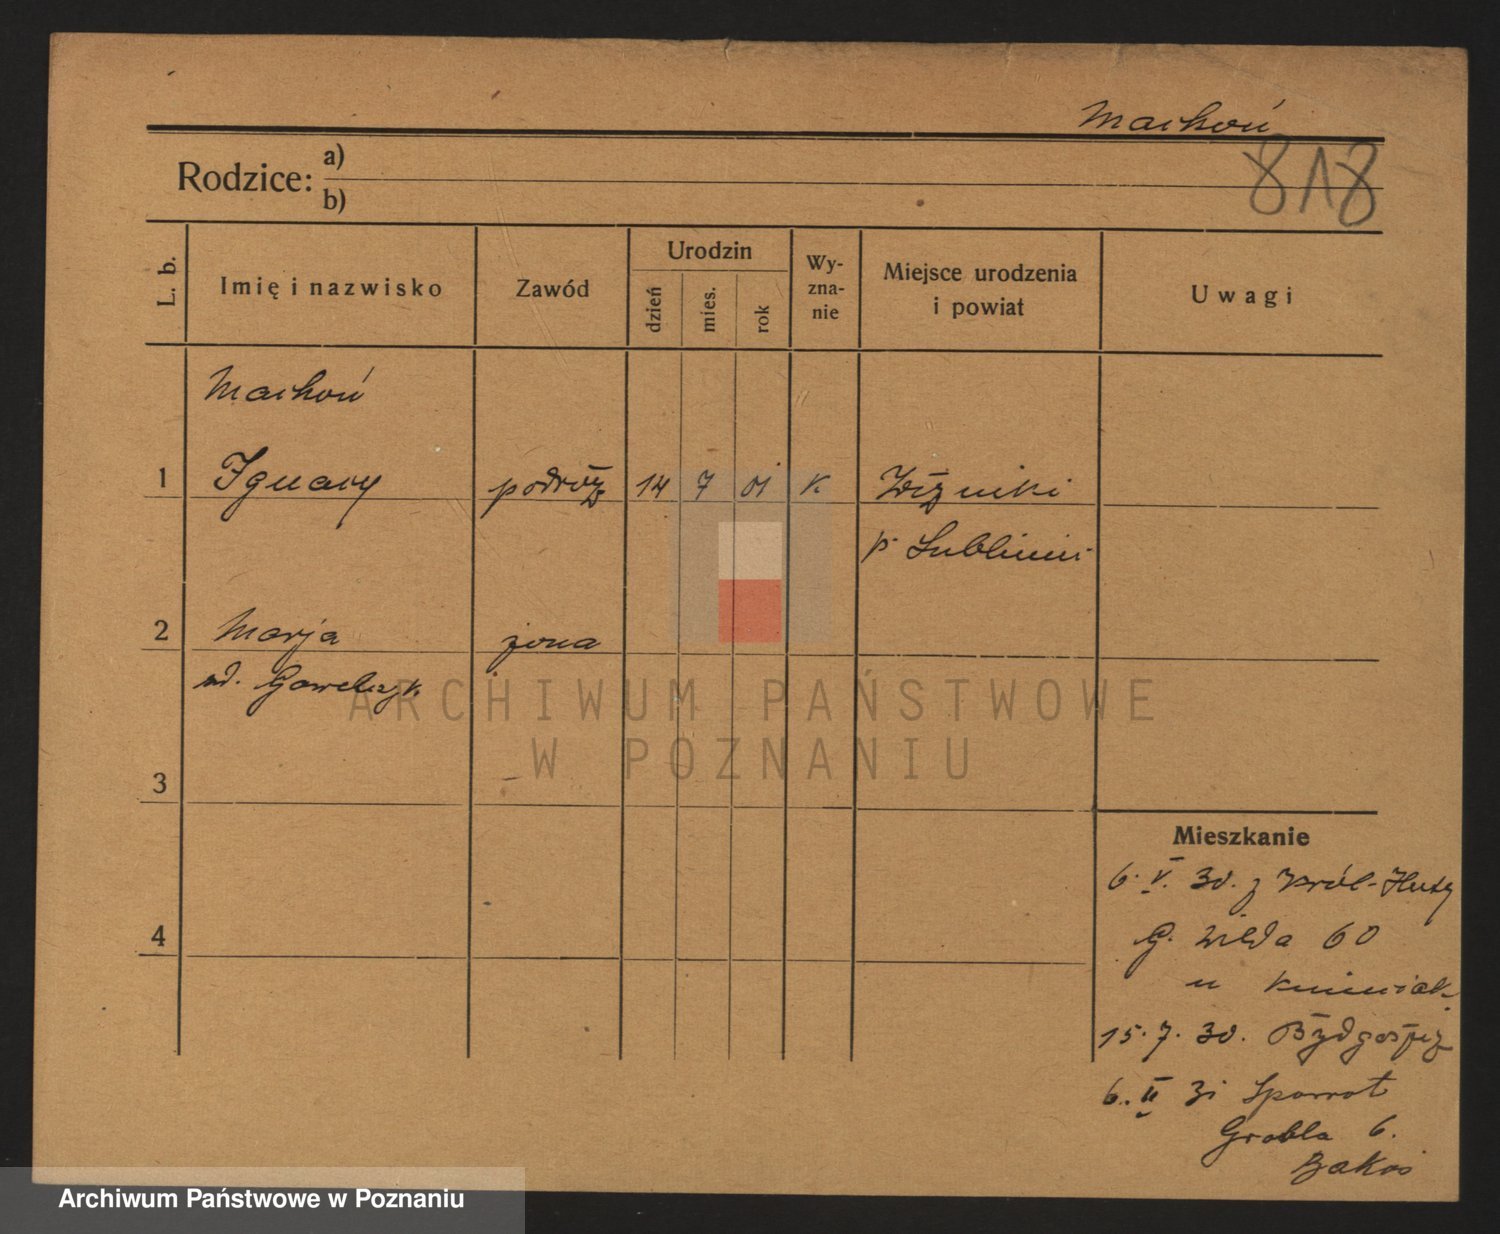 Machoń
818
Rodzice: a)
b)
L. b.
Imię i nazwisko
Zawód
Urodzin
dzień
mies.
rok
Wy-
zna-
nie
Miejsce urodzenia
i powiat
Uwagi
Machoń
1 Ignacy podróż 14 7 01 K
p. Lublinii
2 Marja żona
Gawelczyk
3
4
Mieszkanie
6. V. 30. z Król-Huty
G. Wilda 60
u
15. 7. 30. Bydgoszcz
6. II 31
Grobla 6.
ARCHIWUM PAŃSTWOWE
W POZNANIU
Archiwum Państwowe w Poznaniu